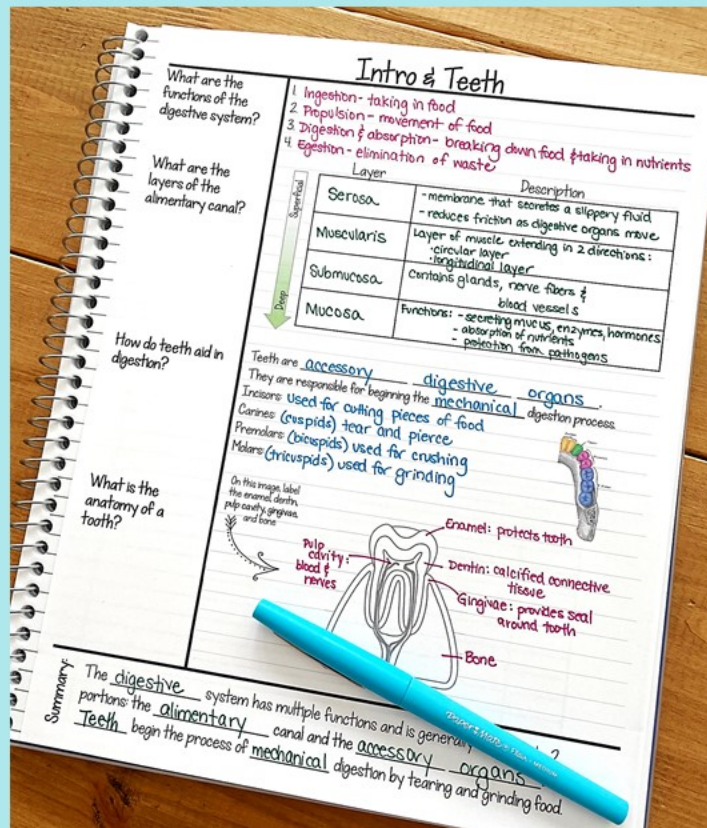 Intro & Teeth
What are the
functions of the
digestive system?
1. Ingestion- taking in food
2. Propulsion- movement of food
3. Digestion & absorption- breaking down food & taking in nutrients
4. Egestion- elimination of waste
What are the
layers of the
alimentary canal?
Layer
Description
Superficial
Deep
Serosa
-membrane that secretes a slippery fluid
-reduces friction as digestive organs move
Muscularis
Layer of muscle extending in 2 directions:
·circular layer
·longitudinal layer
Submucosa
Contains glands, nerve fibers &
blood vessels
Mucosa
Functions: -secreting mucus, enzymes, hormones
- absorption of nutrients
- protection from pathogens
How do teeth aid in
digestion?
Teeth are accessory digestive organs.
They are responsible for beginning the mechanical digestion process.
Incisors: used for cutting pieces of food
Canines: (cuspids) tear and pierce
Premolars: (bicuspids) used for crushing
Molars: (tricuspids) used for grinding
What is the
anatomy of a
tooth?
On this image, label
the enamel, dentin,
pulp cavity, gingivae,
and bone
Enamel: protects tooth
Pulp
cavity:
blood &
nerves
Dentin: calcified connective
tissue
Gingivae: provides seal
around tooth
Bone
Summary:
The digestive system has multiple functions and is 2
portions: the alimentary canal and the accessory organs.
Teeth begin the process of mechanical digestion by tearing and grinding food.
PaperMate Flair